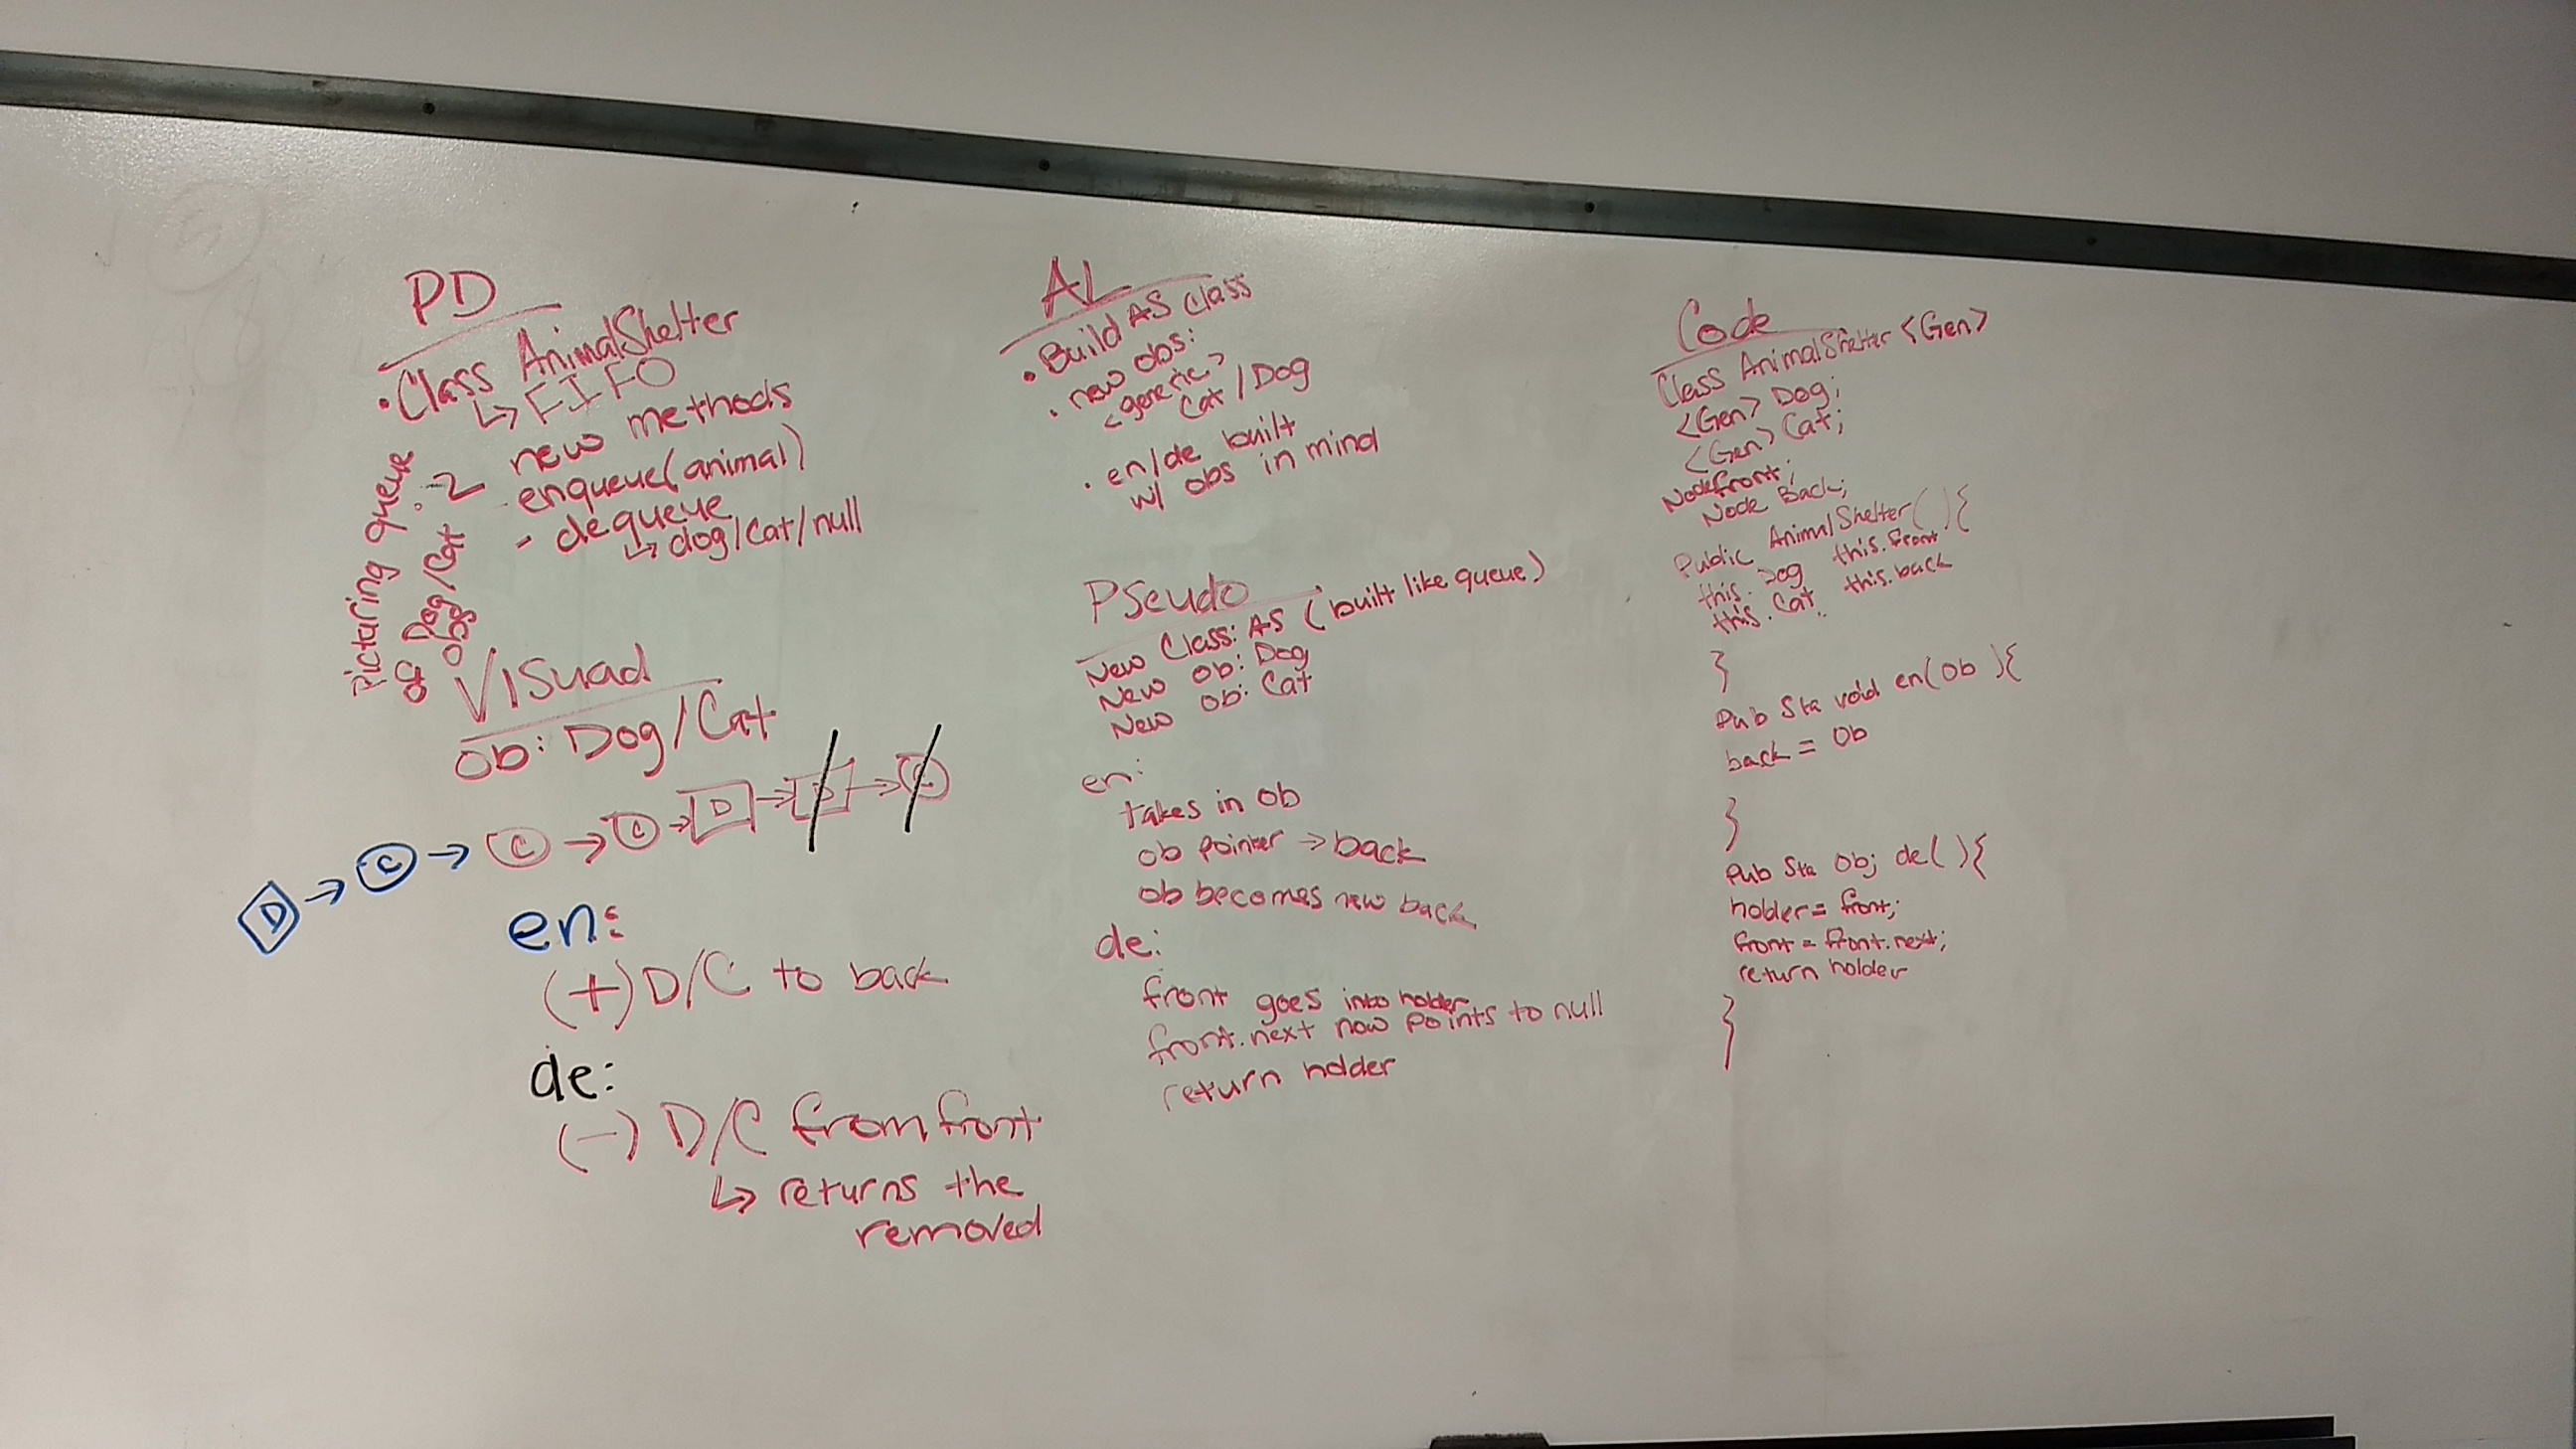 PD
• Class AnimalShelter
↳ FIFO
• 2 new methods
- enqueue(animal)
- dequeue
↳ dog/cat/null
Picturing queue
of Dog/Cat
obs
Visuad
ob: Dog/Cat
D → C → C → C → D → D → C
en:
(+) D/C to back
de:
(-) D/C from front
↳ returns the
removed
AL
• Build AS Class
• new obs:
<generic>
Cat/Dog
• en/de built
w/ obs in mind
Pseudo
New Class: AS (built like queue)
New ob: Dog
New ob: Cat
en:
takes in ob
ob pointer → back
ob becomes new back
de:
front goes into holder
front.next now points to null
return holder
Code
Class AnimalShelter <Gen>
<Gen> Dog;
<Gen> Cat;
Node front;
Node Back;
Public AnimalShelter(){
this.Dog this.front
this.Cat this.back
}
Pub Sta void en(Ob){
back = Ob
}
Pub Sta Obj de(){
holder = front;
front = front.next;
return holder
}